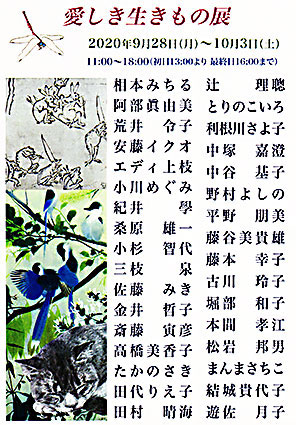 愛しき生きもの展
2020年9月28日(月)～10月3日(土)
11:00～18:00(初日13:00より 最終日16:00まで)
相本みちる
阿部眞由美
荒井 令子
安藤イクオ
エディ上枝
小川めぐみ
紀井 學
桑原 雄一
小杉 智代
三枝 泉
佐藤 みき
金井 哲子
斎藤 寅彦
高橋美香子
たかのさき
田代りえ子
田村 晴海
辻 理聰
とりのこいろ
利根川さよ子
中塚 嘉澄
中谷 基子
野村よしの
平野 朋美
藤谷美貴雄
藤本 幸子
古川 玲子
堀部 和子
本間 孝江
松岩 邦男
まんまさちこ
結城貴代子
遊佐 月子